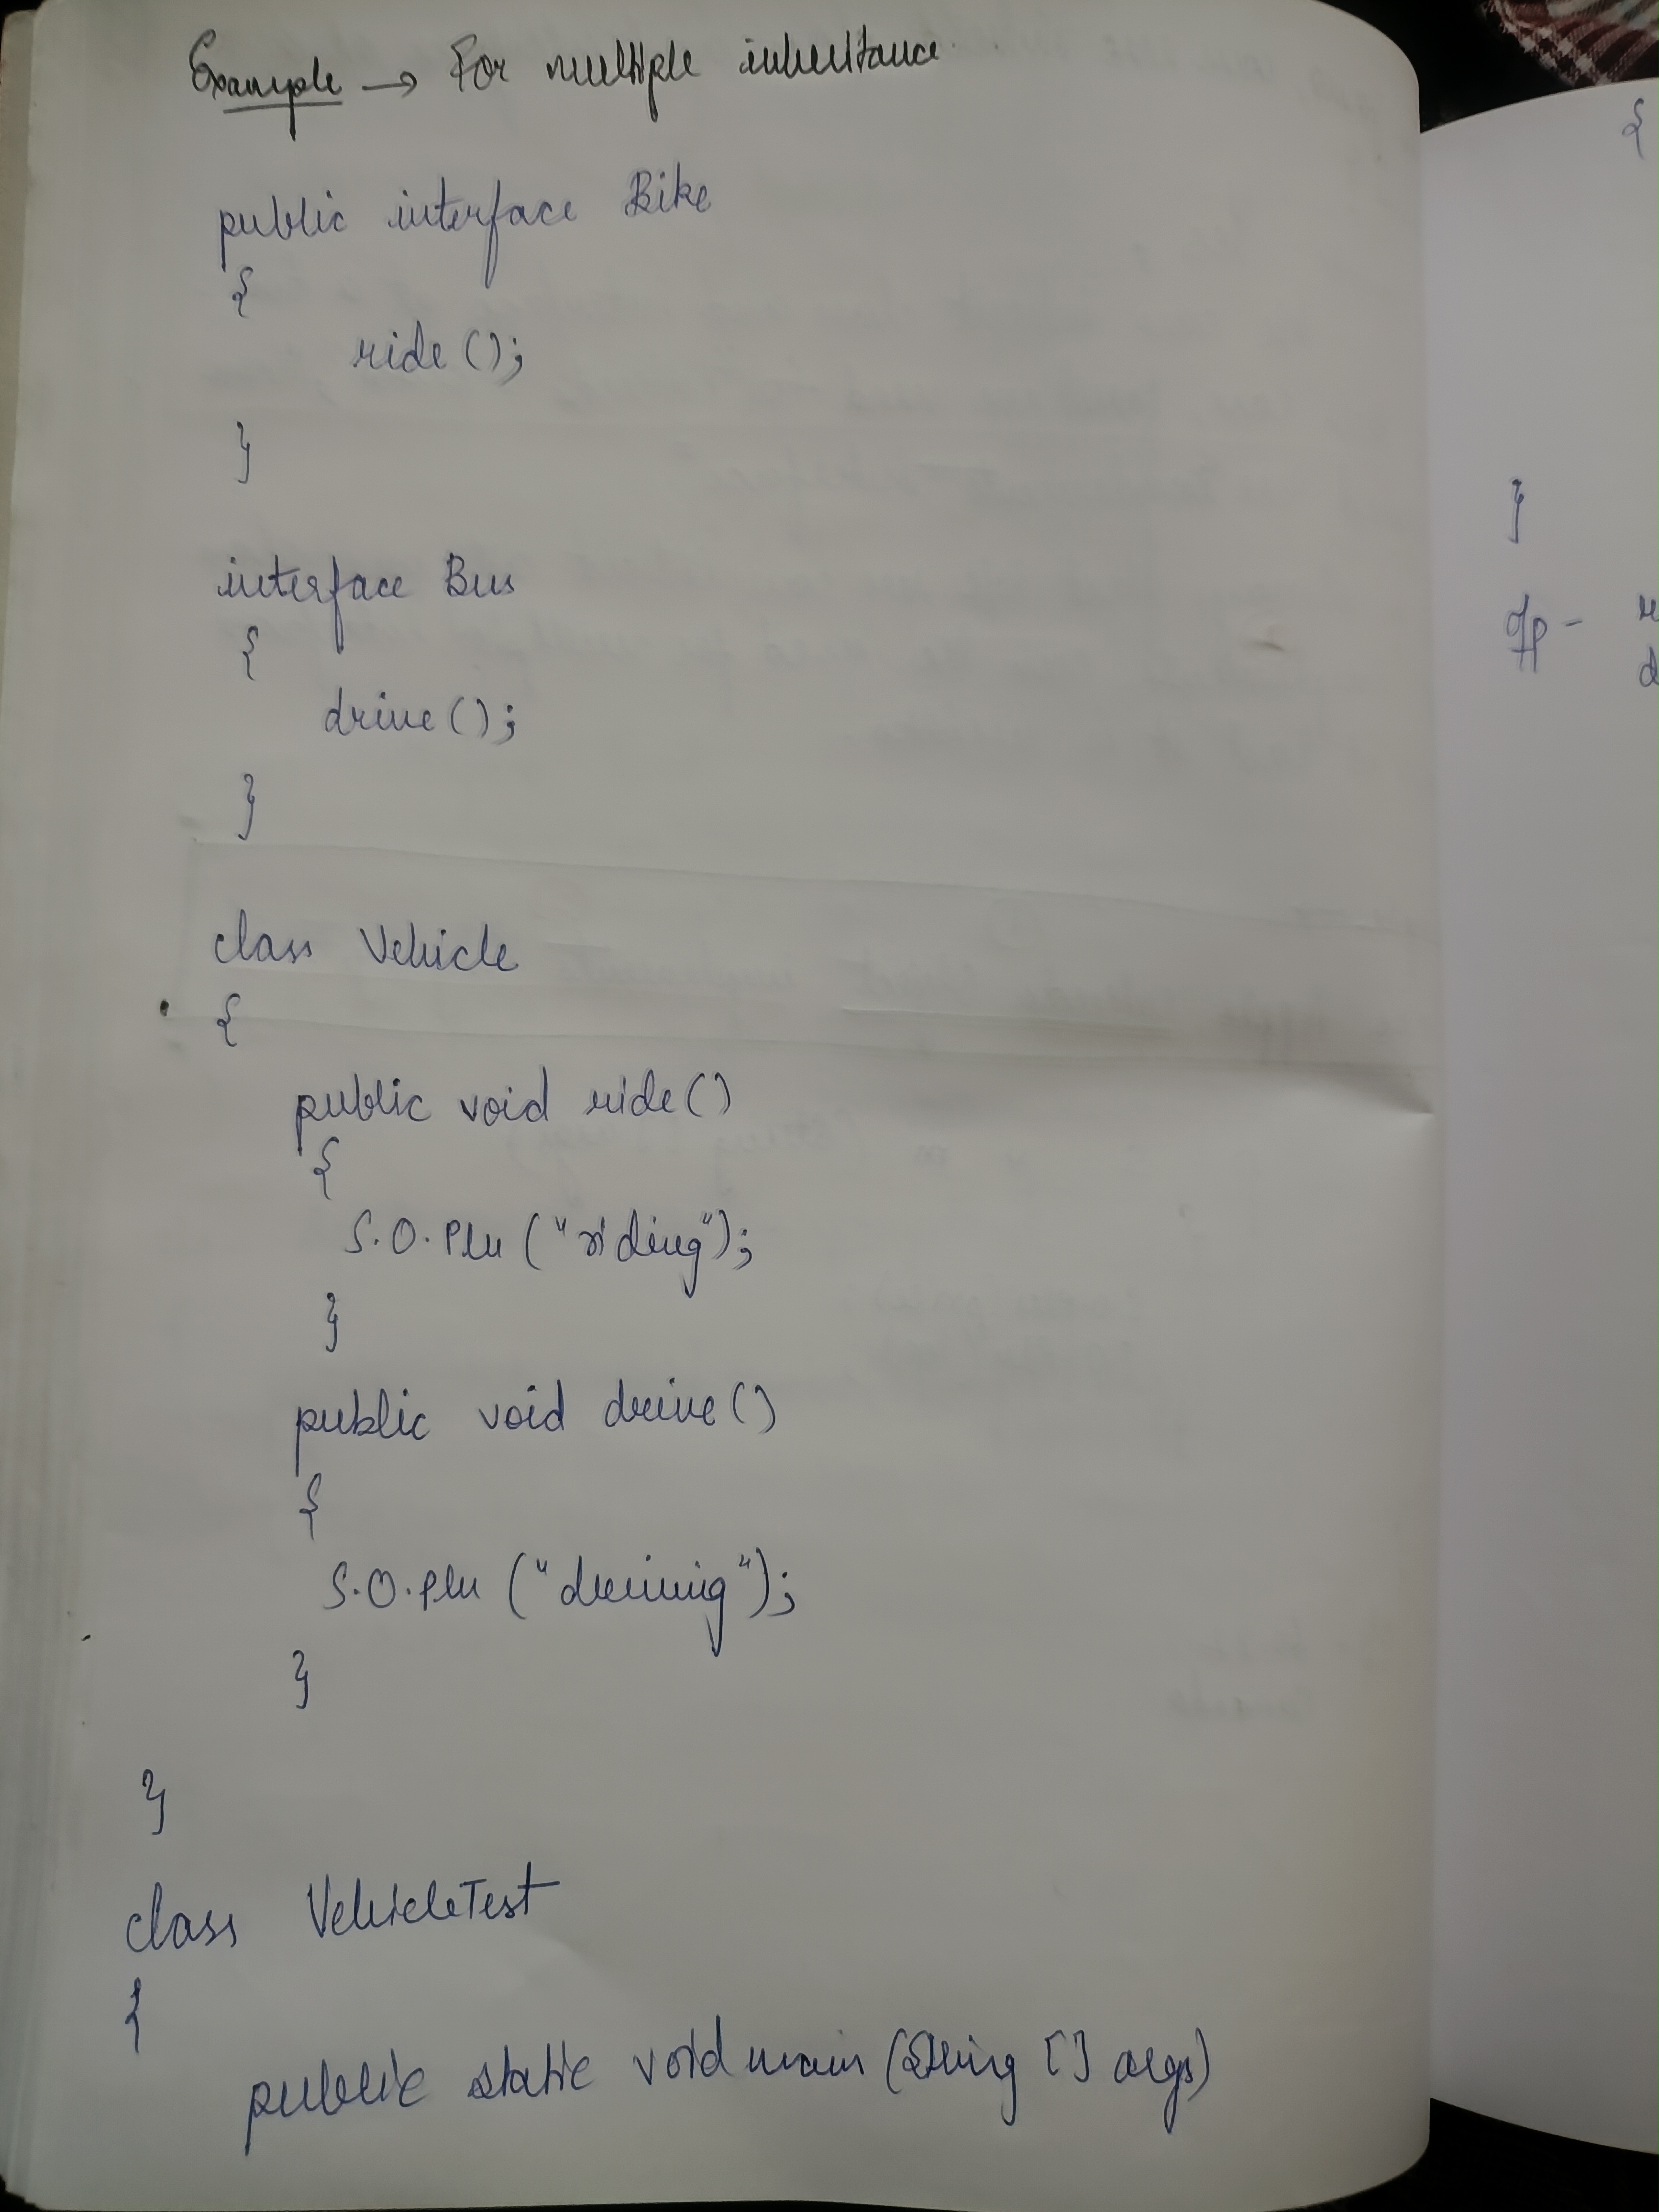 Example → For multiple inheritance.
public interface Bike
{
ride();
}
interface Bus
{
drive();
}
class Vehicle
{
public void ride()
{
S.O.Pln ("riding");
}
public void drive()
{
S.O.Pln ("driving");
}
}
class VehicleTest
{
public static void main (String [] args)
{
}
o/p -